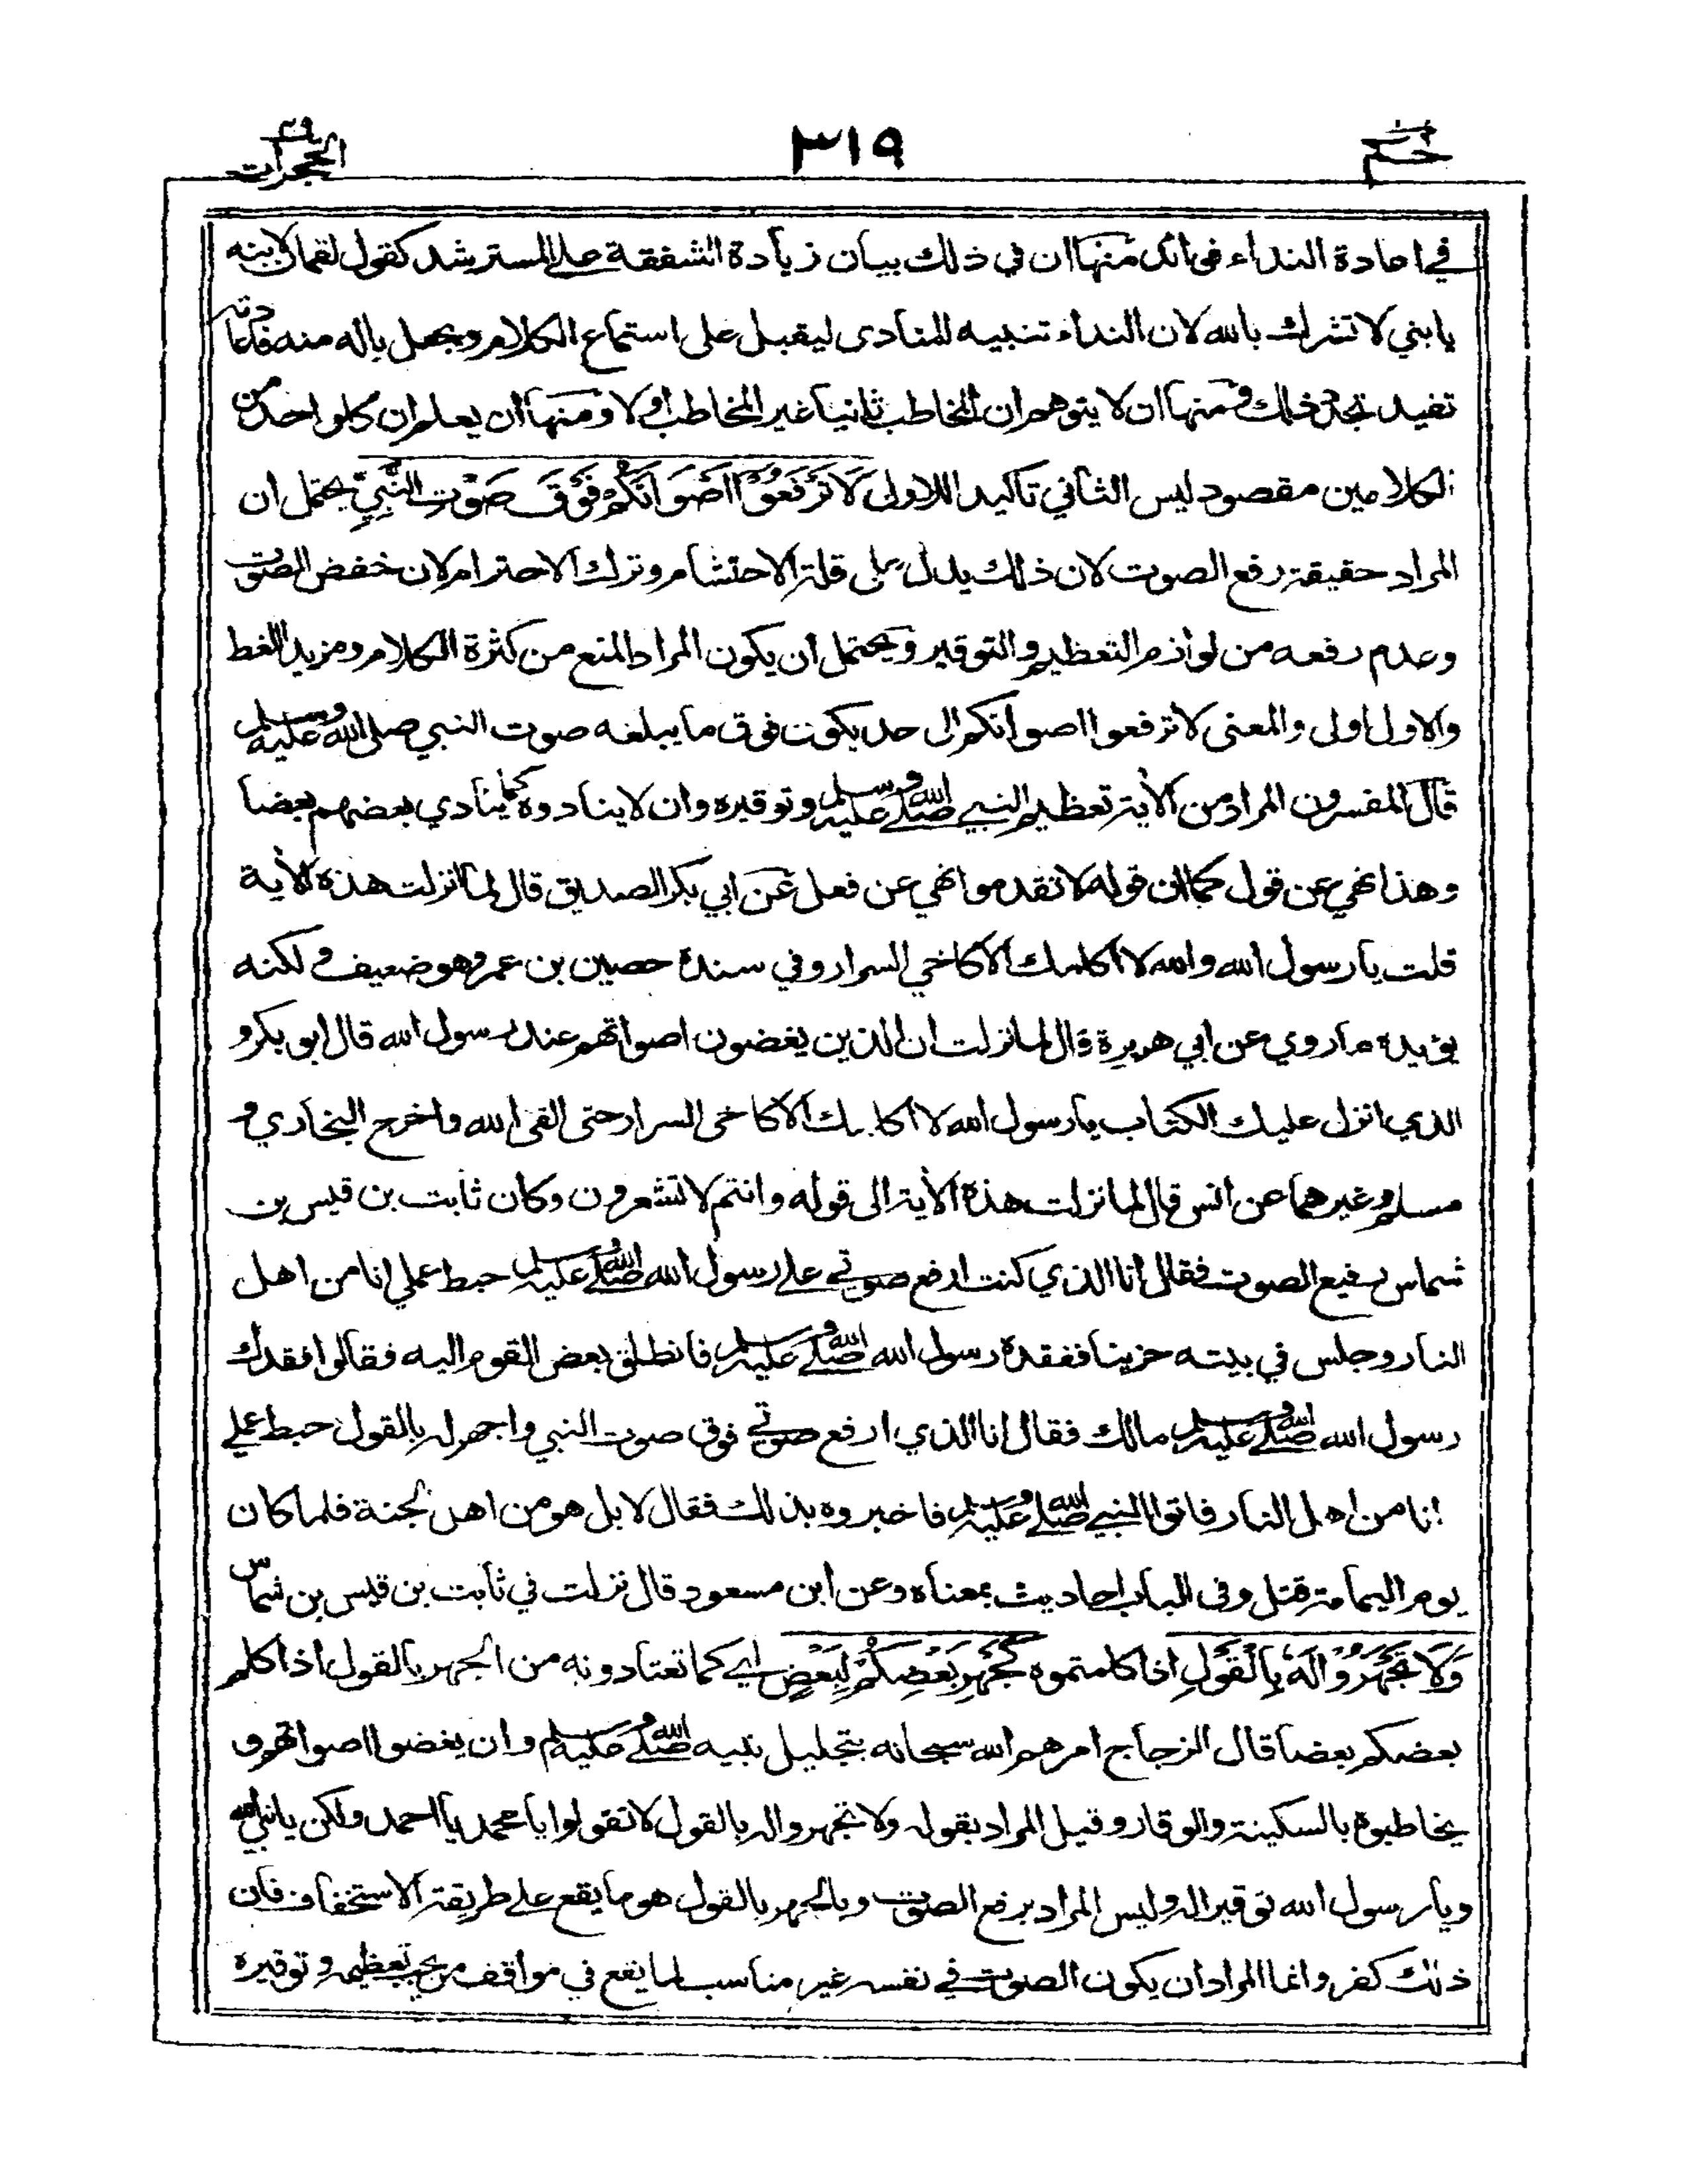 حٰم ٢٦
٣١٩
الحجرات ٤٩
في اعادة النداء فوائد منها ان في ذلك بيان زيادة الشفقة على المسترشد كقول لقمان لابنه
يا بني لا تشرك بالله لان النداء تنبيه للمنادى ليقبل على استماع الكلام ويجعل باله منه فاعادته
تفيد تجدد ذلك ومنها ان لا يتوهم ان المخاطب ثانيا غير المخاطب اولا ومنها ان يعلم ان كلا واحد من
الكلامين مقصود ليس الثاني تاكيدا للاول لَا تَرْفَعُوْا اَصْوَاتَكُمْ فَوْقَ صَوْتِ النَّبِيِّ يحتمل ان
المراد حقيقة رفع الصوت لان ذلك يدل على قلة الاحتشام وترك الاحترام لان خفض الصوت
وعدم رفعه من لوازم التعظيم والتوقير ويحتمل ان يكون المراد المنع من كثرة الكلام ومزيد اللغط
والاول اولى والمعنى لا ترفعوا اصواتكم الى حد يكون فوق ما يبلغه صوت النبي صلى الله عليه وسلم
قال المفسرون المراد من الآية تعظيم النبي صلى الله عليه وسلم وتوقيره وان لا ينادوه كما ينادي بعضهم بعضا
وهذا نهي عن قول كما ان قوله لا تقدموا نهي عن فعل عن ابي بكر الصديق قال لما انزلت هذه الآية
قلت يا رسول الله والله لا اكلمك الا كاخي السرار وفي سنده حصين بن عمر وهو ضعيف ولكنه
يؤيده ما روي عن ابي هريرة قال لما نزلت ان الذين يغضون اصواتهم عند رسول الله قال ابو بكر و
الذي انزل عليك الكتاب يا رسول الله لا اكلمك الا كاخي السرار حتى القى الله واخرج البخاري و
مسلم وغيرهما عن انس قال لما نزلت هذه الآية الى قوله وانتم لا تشعرون وكان ثابت بن قيس بن
شماس رفيع الصوت فقال انا الذي كنت ارفع صوتي على رسول الله صلى الله عليه وسلم حبط عملي انا من اهل
النار وجلس في بيته حزينا ففقده رسول الله صلى الله عليه وسلم فانطلق بعض القوم اليه فقالوا فقدك
رسول الله صلى الله عليه وسلم مالك فقال انا الذي ارفع صوتي فوق صوت النبي واجهر له بالقول حبط عملي
انا من اهل النار فاتوا النبي صلى الله عليه وسلم فاخبروه بذلك فقال لا بل هو من اهل الجنة فلما كان
يوم اليمامة قتل وفي الباب احاديث بمعناه وعن ابن مسعود قال نزلت في ثابت بن قيس بن شماس
وَلَا تَجْهَرُوْا لَهٗ بِالْقَوْلِ اذا كلمتموه كَجَهْرِ بَعْضِكُمْ لِبَعْضٍ اي كما تعتادونه من الجهر بالقول اذا كلم
بعضكم بعضا قال الزجاج امرهم الله سبحانه بتجليل نبيه صلى الله عليه وسلم وان يغضوا اصواتهم و
يخاطبوه بالسكينة والوقار وقيل المراد بقوله ولا تجهروا له بالقول لا تقولوا يا محمد يا احمد ولكن يا نبي الله
ويا رسول الله توقيرا له وليس المراد برفع الصوت وبالجهر بالقول هو ما يقع على طريقة الاستخفاف فان
ذلك كفر وانما المراد ان يكون الصوت في نفسه غير مناسب لما يقع في مواقف من يجب تعظيمه وتوقيره